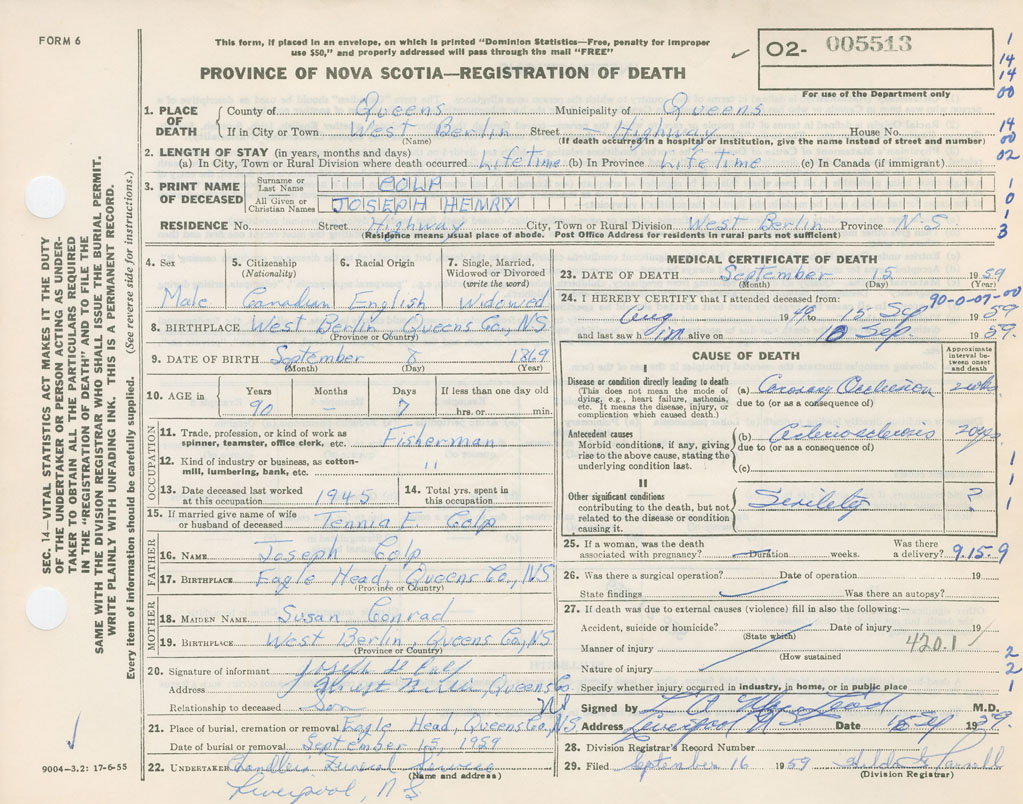 FORM 6
This form, if placed in an envelope, on which is printed "Dominion Statistics—Free, penalty for improper
use $50," and properly addressed will pass through the mail "FREE"
PROVINCE OF NOVA SCOTIA—REGISTRATION OF DEATH
02- 005513
For use of the Department only
1
14
14
00
14
00
02
1
0
1
3
1. PLACE OF DEATH
County of Queens Municipality of Queens
If in City or Town West Berlin Street — Highway House No.
(Name) (If death occurred in a hospital or institution, give the name instead of street and number)
2. LENGTH OF STAY (in years, months and days)
(a) In City, Town or Rural Division where death occurred Lifetime (b) In Province Lifetime (c) In Canada (if immigrant)
3. PRINT NAME OF DECEASED
Surname or Last Name COLP
All Given or Christian Names JOSEPH HENRY
RESIDENCE No. Street Highway City, Town or Rural Division West Berlin Province N.S
(Residence means usual place of abode. Post Office Address for residents in rural parts not sufficient)
4. Sex
Male
5. Citizenship
(Nationality)
Canadian
6. Racial Origin
English
7. Single, Married,
Widowed or Divorced
(write the word)
Widowed
8. BIRTHPLACE West Berlin, Queens Co., N.S
(Province or Country)
9. DATE OF BIRTH September 8 1869
(Month) (Day) (Year)
10. AGE in
Years Months Days If less than one day old
90 — 7 hrs. or min.
OCCUPATION
11. Trade, profession, or kind of work as
spinner, teamster, office clerk, etc. Fisherman
12. Kind of industry or business, as cotton-
mill, lumbering, bank, etc. "
13. Date deceased last worked
at this occupation 1945
14. Total yrs. spent in
this occupation
15. If married give name of wife
or husband of deceased Tennia E. Colp
FATHER
16. NAME Joseph Colp
17. BIRTHPLACE Eagle Head, Queens Co., N.S
(Province or Country)
MOTHER
18. MAIDEN NAME Susan Conrad
19. BIRTHPLACE West Berlin, Queens Co., N.S
(Province or Country)
20. Signature of informant Joseph H Colp
Address Queens Co.
Relationship to deceased Son NS
21. Place of burial, cremation or removal Eagle Head, Queens Co., N.S.
Date of burial or removal September 15, 1959
22. UNDERTAKER Chandlers Funeral Services
(Name and address)
Liverpool, N.S
MEDICAL CERTIFICATE OF DEATH
23. DATE OF DEATH September 15 1959
(Month) (Day) (Year)
24. I HEREBY CERTIFY that I attended deceased from: 90-0-07-00
Aug 1949 to 15 Sep 1959
and last saw him alive on 10 Sep 1959.
CAUSE OF DEATH
Approximate
interval be-
tween onset
and death
I
Disease or condition directly leading to death
(This does not mean the mode of
dying, e.g., heart failure, asthenia,
etc. It means the disease, injury, or
complication which caused death.)
(a) Coronary Occlusion 2 wks
due to (or as a consequence of)
Antecedent causes
Morbid conditions, if any, giving
rise to the above cause, stating the
underlying condition last.
(b) Arteriosclerosis 20 yrs
due to (or as a consequence of)
(c)
II
Other significant conditions
contributing to the death, but not
related to the disease or condition
causing it.
Senility ?
1
1
1
25. If a woman, was the death
associated with pregnancy? Duration weeks. Was there
a delivery? 9.15.9
26. Was there a surgical operation? Date of operation 19
State findings Was there an autopsy?
27. If death was due to external causes (violence) fill in also the following:—
Accident, suicide or homicide? Date of injury 19
(State which)
Manner of injury 420.1
(How sustained
Nature of injury
Specify whether injury occurred in industry, in home, or in public place
2
2
1
Signed by M.D.
Address Liverpool N.S. Date 15 Sep 1959.
28. Division Registrar's Record Number
29. Filed September 16 1959
(Division Registrar)
SEC. 14—VITAL STATISTICS ACT MAKES IT THE DUTY
OF THE UNDERTAKER OR PERSON ACTING AS UNDER-
TAKER TO OBTAIN ALL THE PARTICULARS REQUIRED
IN THE "REGISTRATION OF DEATH" AND TO FILE THE
SAME WITH THE DIVISION REGISTRAR WHO SHALL ISSUE THE BURIAL PERMIT.
WRITE PLAINLY WITH UNFADING INK. THIS IS A PERMANENT RECORD.
Every item of information should be carefully supplied. (See reverse side for instructions.)
9004-3.2: 17-6-55